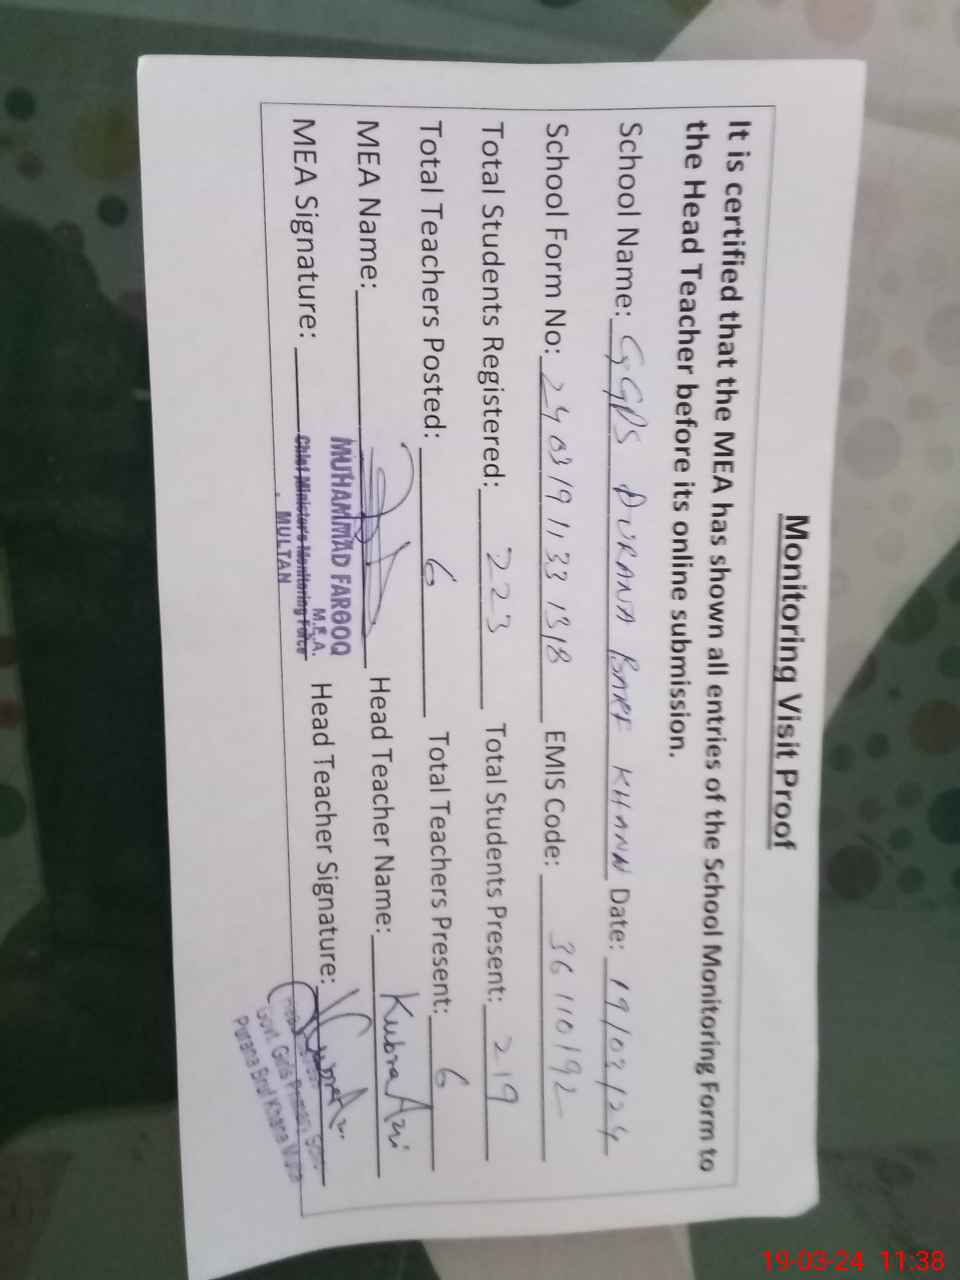 Monitoring Visit Proof
It is certified that the MEA has shown all entries of the School Monitoring Form to
the Head Teacher before its online submission.
School Name: GGPS PURANA BARF KHANA Date: 19/03/24
School Form No: 2403191133 1318 EMIS Code: 36110192
Total Students Registered: 223 Total Students Present: 219
Total Teachers Posted: 6 Total Teachers Present: 6
MEA Name: Head Teacher Name: Kubra
MUHAMMAD FAROOQ
M.E.A.
MEA Signature: Head Teacher Signature:
Chief Minister's Monitoring Force
MULTAN
Govt. Girls Primary
Purana Brof Khana
19-03-24 11:38